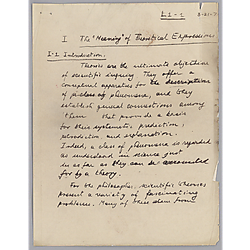 I-1-1
I The "Meaning" of Theoretical Expressions
I-1 Introduction.
Theories are the ultimate objective
of scientific inquiry. They offer a
conceptual apparatus for the description
of a class of phenomena, and they
establish general connections among
them that provide a basis
for their systematic prediction,
retrodiction and explanation.
Indeed, a class of phenomena is regarded
as understood in science just
in as far as they can be accounted
for by a theory.
For the philosopher, scientific theories
present a variety of fascinating
problems. Many of these stem from